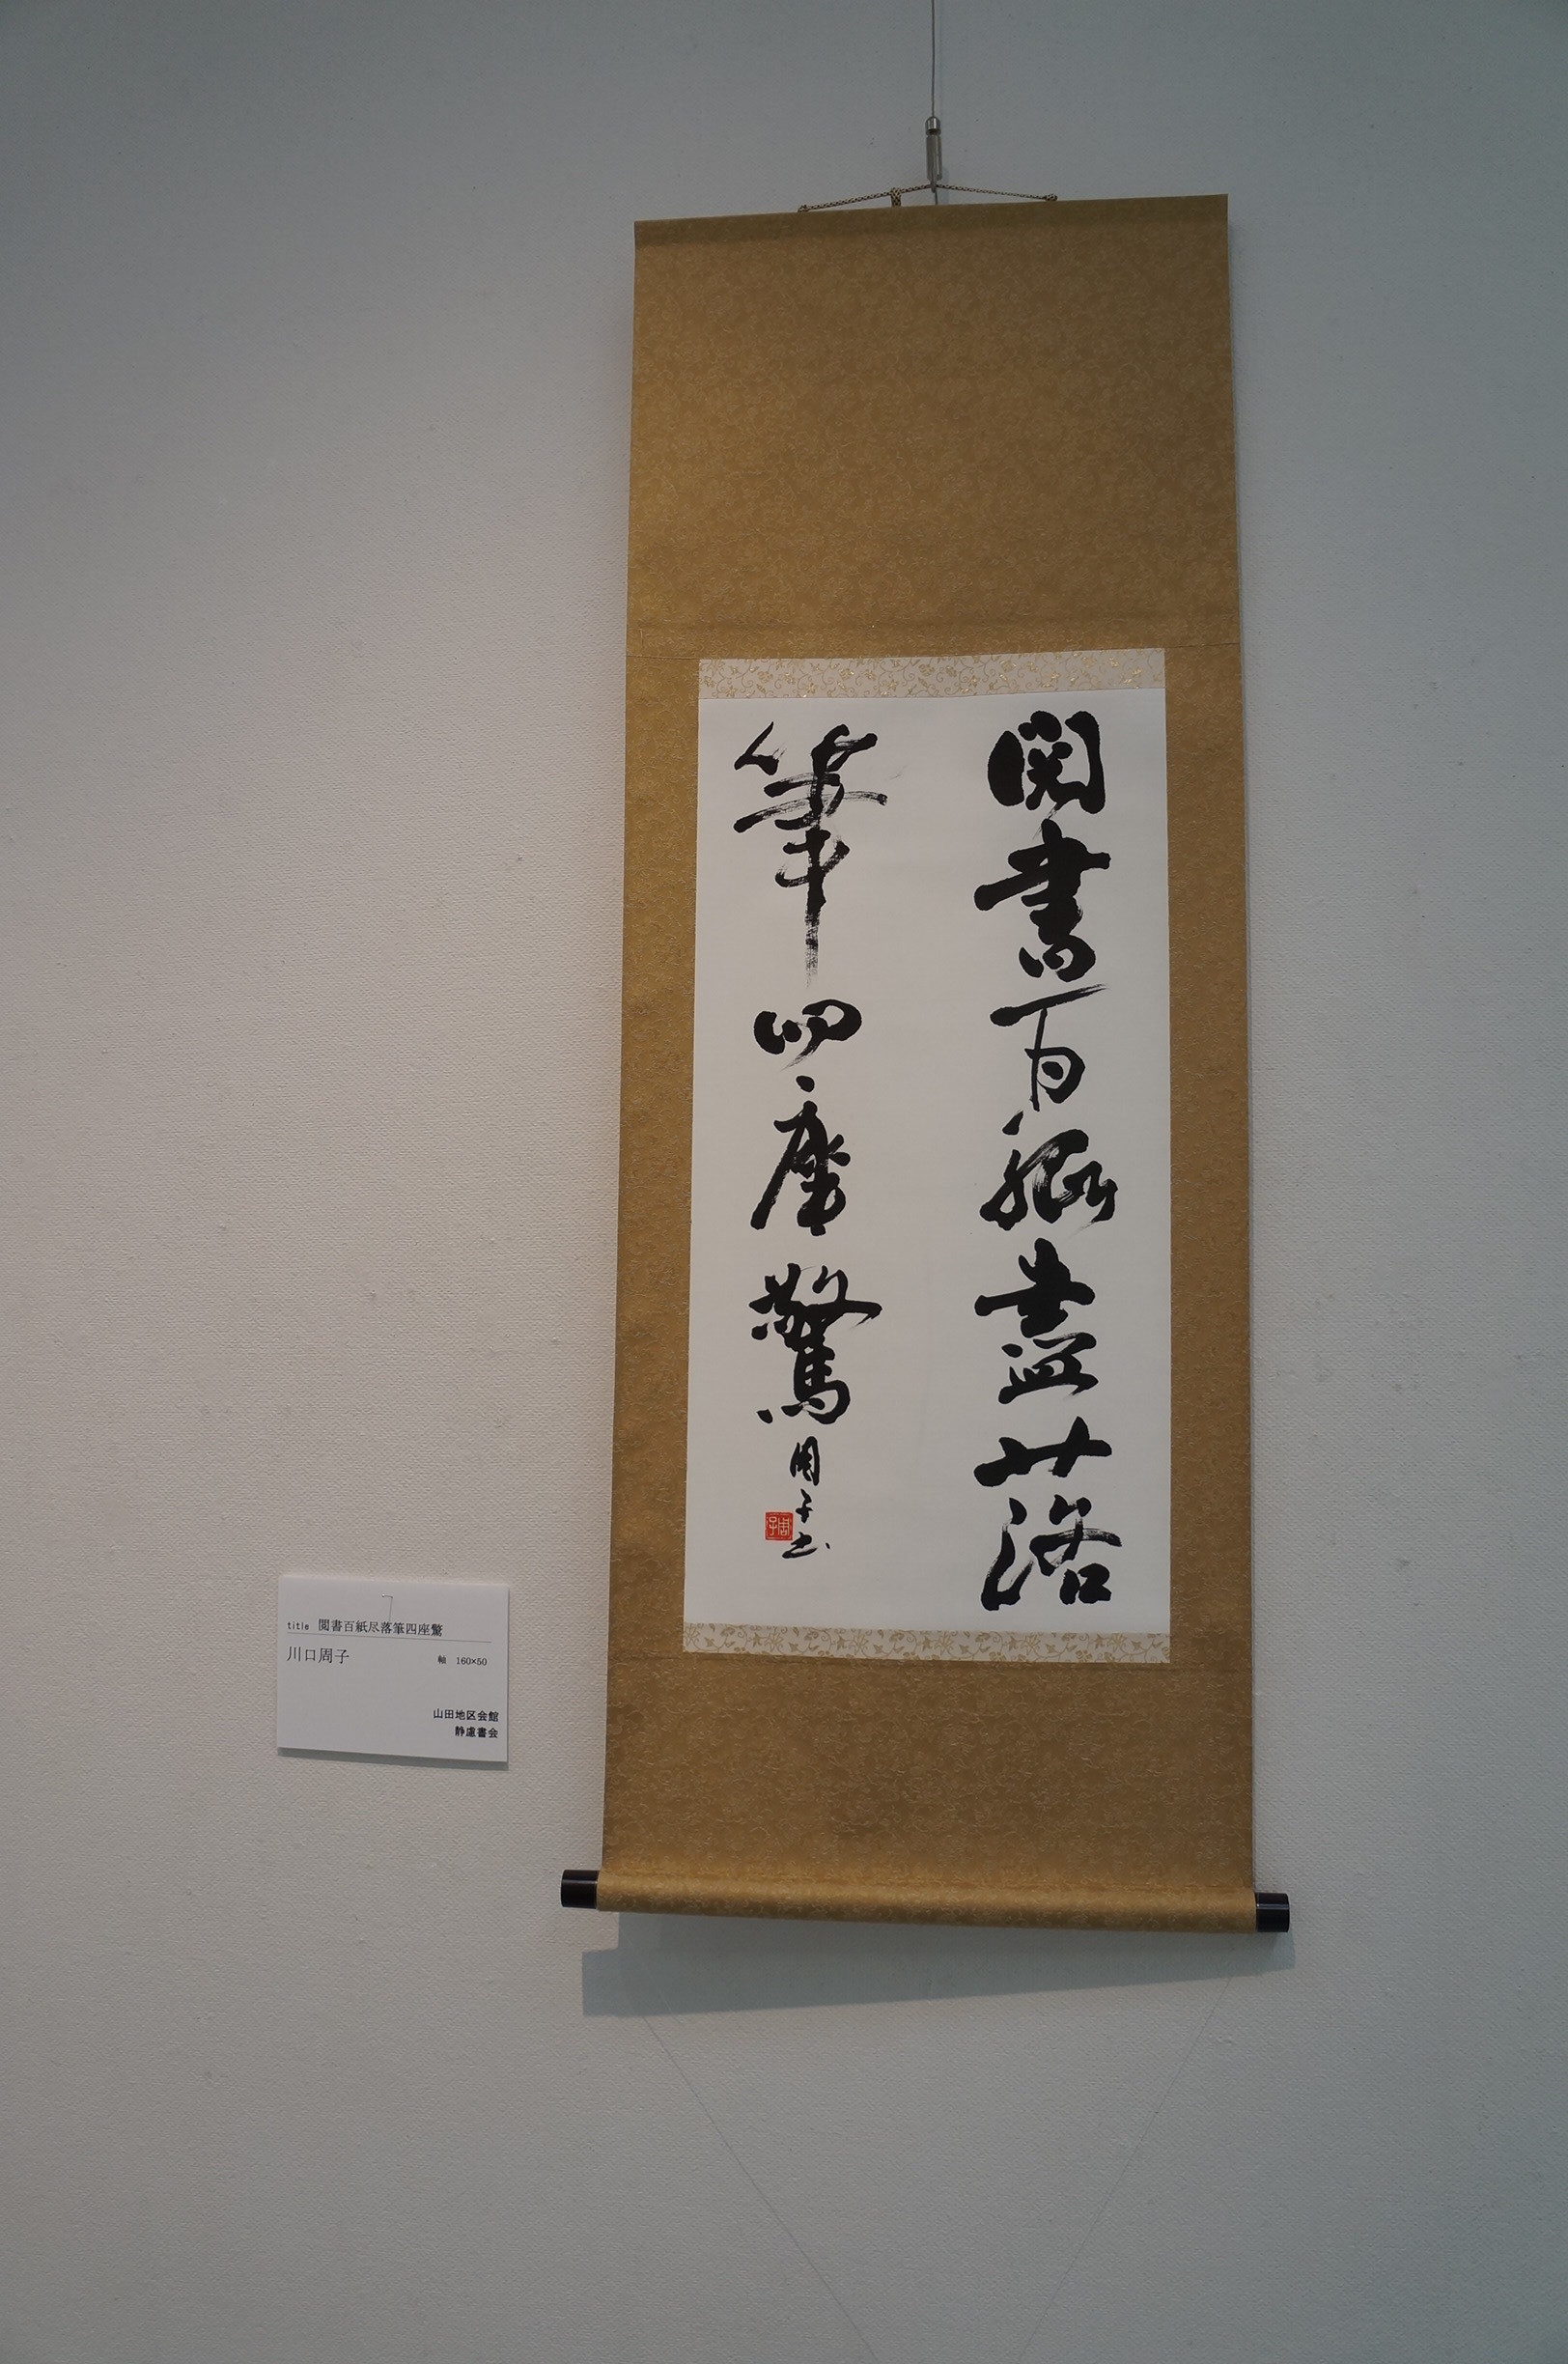 閲書百紙盡落
筆四座驚
周子書
周子
title 閲書百紙尽落筆四座驚
川口周子
軸 160×50
山田地区会館
静慮書会